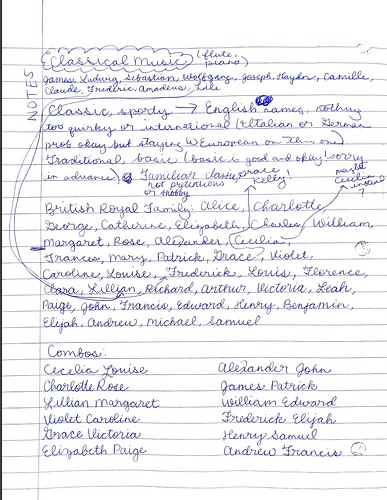 NOTES
Classical Music (flute, piano)
James, Ludwig, Sebastian, Wolfgang, Joseph, Haydn, Camille,
Claude, Frederic, Amadeus, Lili
Classic, sporty → English names, nothing
too quirky or international (Italian or German
prob. okay but staying W European on this one)
Traditional, basic (basic is good and okay! sorry
in advance) Familiar, classic,
not pretentious
or snobby
grace
kelly!
maybe
Cecilia
instead?
British Royal Family: Alice, Charlotte
George, Catherine, Elizabeth, Charles, William,
Margaret, Rose, Alexander, Cecilia,
Frances, Mary, Patrick, Grace, Violet,
Caroline, Louise, Frederick, Louis, Florence,
Clara, Lillian, Richard, Arthur, Victoria, Leah,
Paige, John, Francis, Edward, Henry, Benjamin,
Elijah, Andrew, Michael, Samuel
Combos:
Cecelia Louise Alexander John
Charlotte Rose James Patrick
Lillian Margaret William Edward
Violet Caroline Frederick Elijah
Grace Victoria Henry Samuel
Elizabeth Paige Andrew Francis